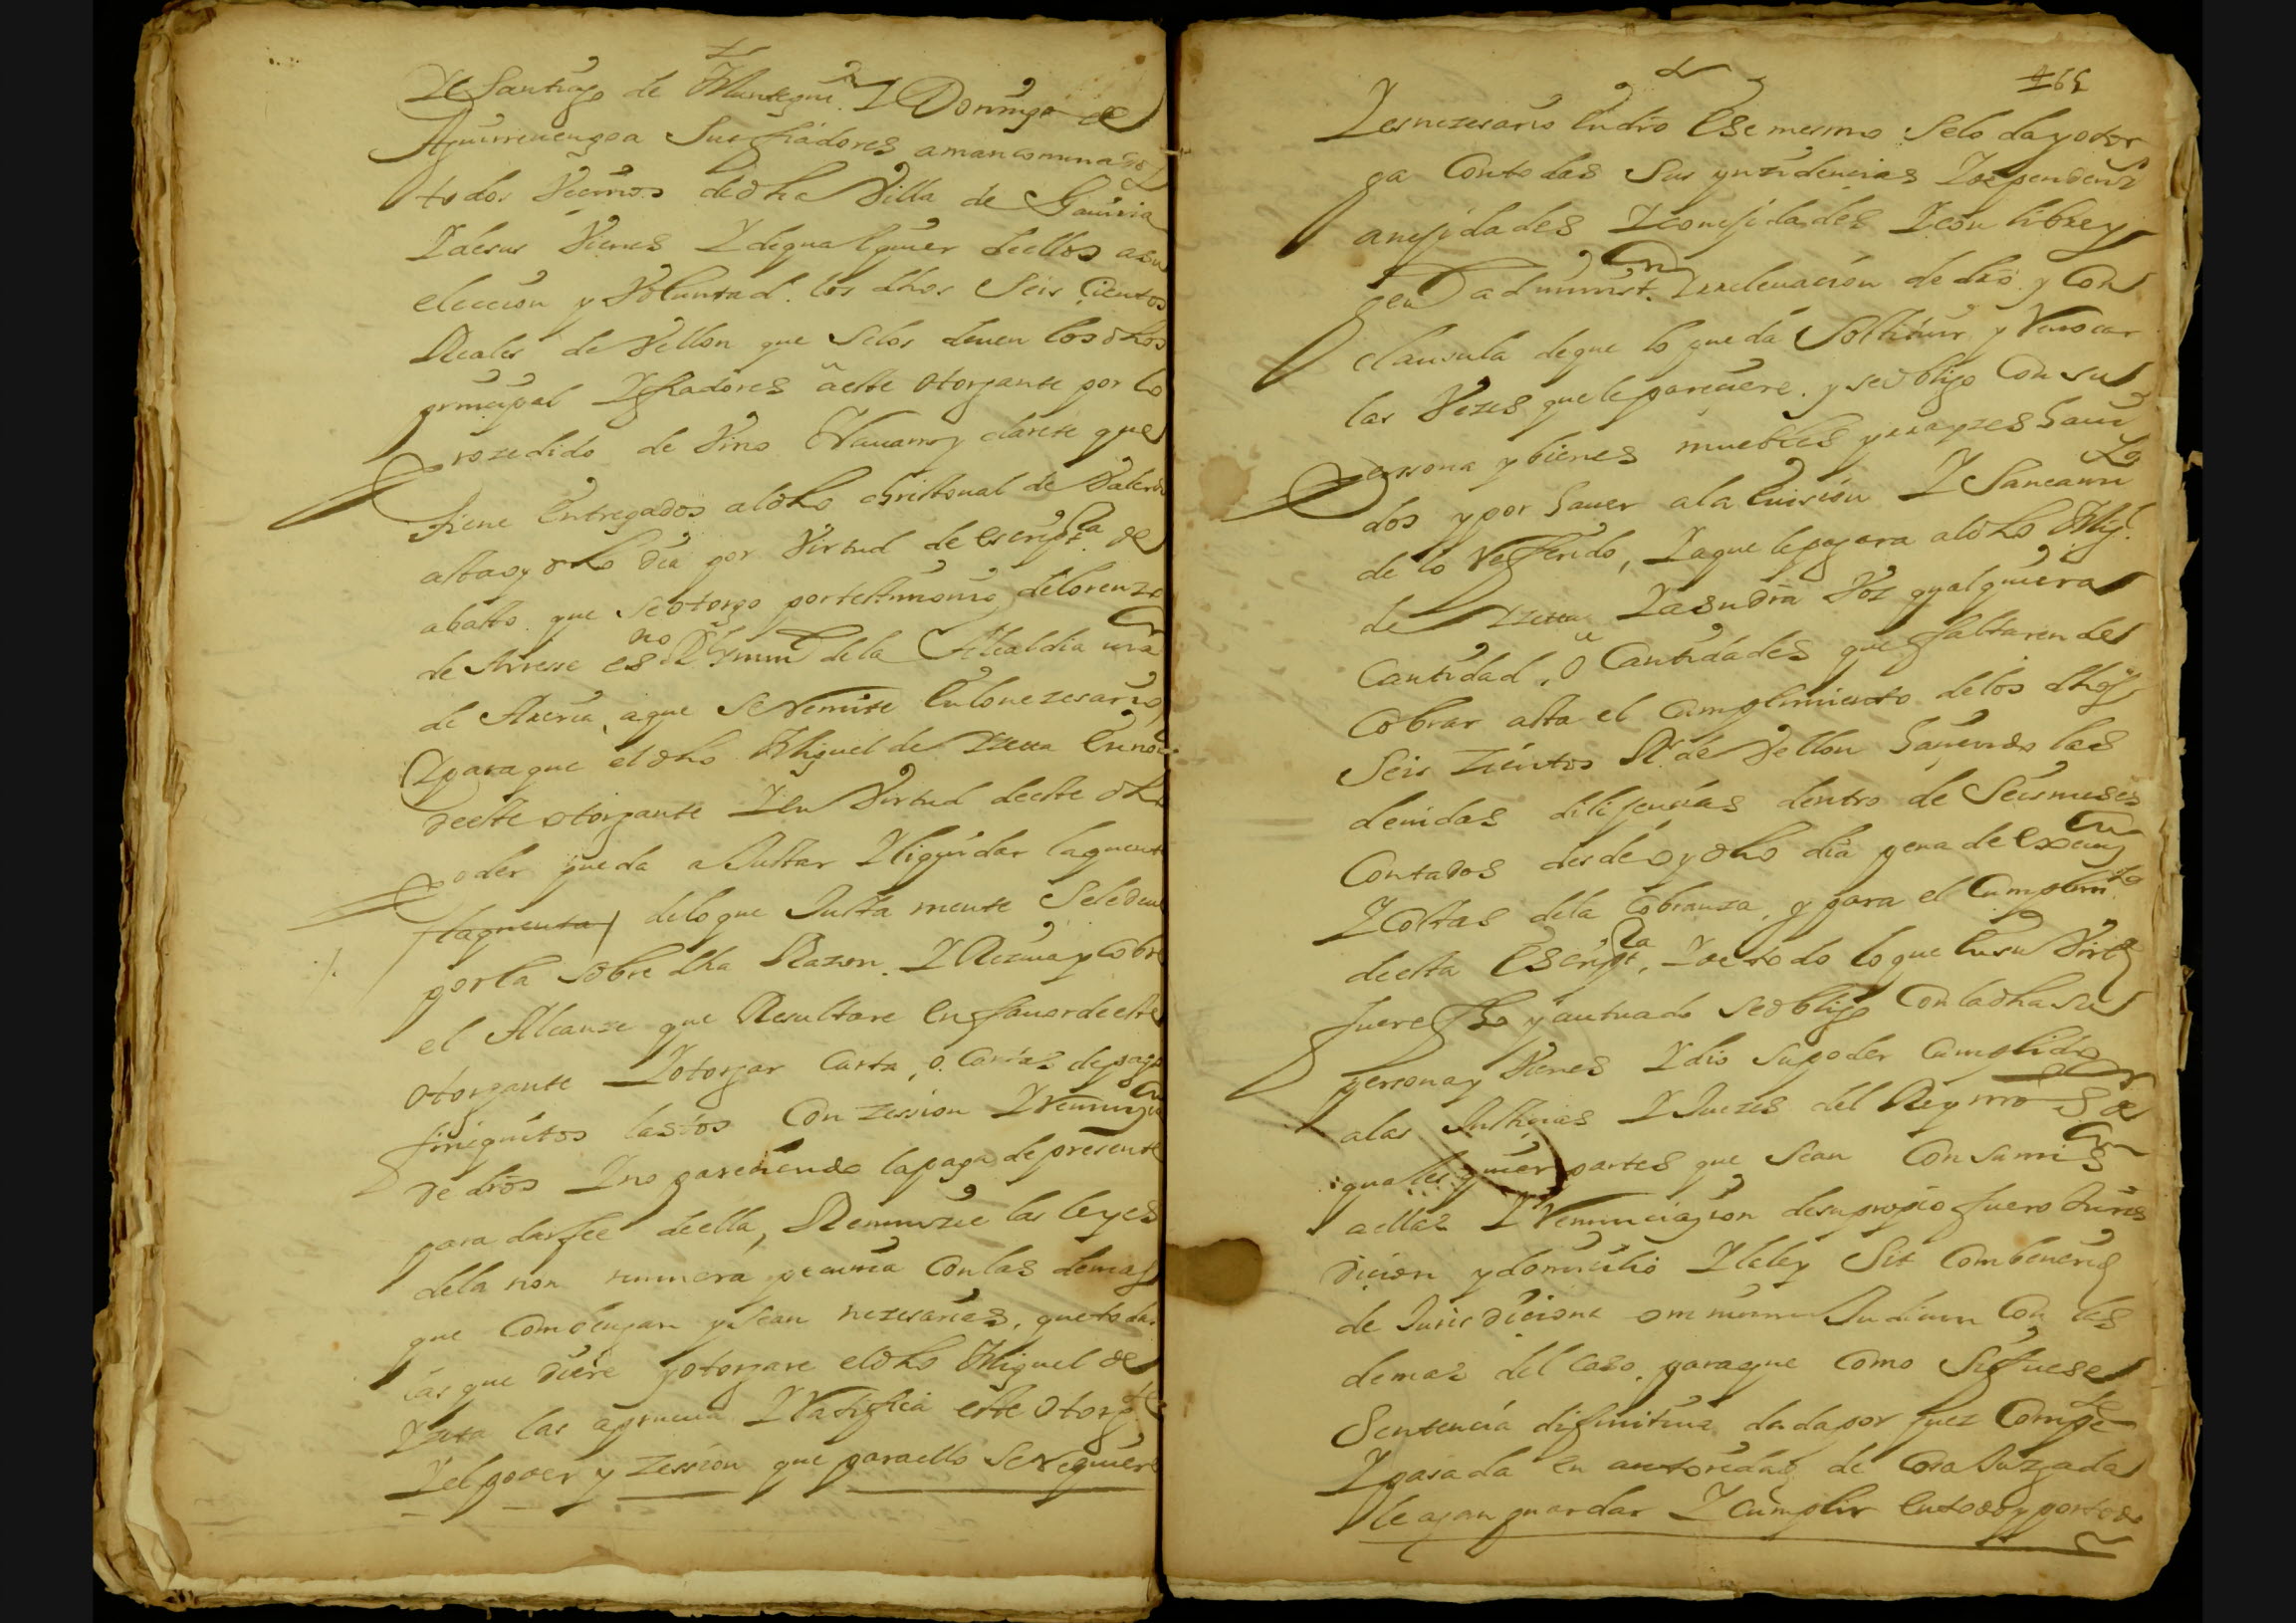 de Santiago de Muntegui Y Domingo de
Aguirrevengoa Sus fiadores amancomunados
todos Vecinos de dha Villa de Gauiria
Y de sus Vienes Y de qualquier de ellos a su
eleccion y Voluntad. los dhos Seis Cientos
Reales de Vellon que Selos deuen los dhos
prinçipal Y fiadores a este otorgante por lo
prozedido de Vino Nauarro y clarete que
tiene Entregados al dho christoual de
asta oy dho dia por Virtud de escriptra de
abasto que se otorgo por testimonio de lorenzo
de Arrese esno R.l Y num de la Alcaldia
de Areria, a que Se Remite En lo nezesario,
Y para que el dho Miguel de Yzeta En no
de este otorgante Y En Virtud de este dho
Poder pueda aJustar Y liquidar la quenta
la quenta de lo que Justa mente Se le deue
por la sobre dha Razon. Y Reziua y cobre
el Alcanze que Resultare En fauor de este
otorgante Y otorgar Carta, o Cartas de pago
finiquitos lastos Con zession Y Renunzon
de dros Y no pareciendo la paga de presente
para dar fee de ella, Renunzie las leyes
de la non numera pecunia Con las demas
que Combengan y Sean nezesarias, que todas
las que diere y otorgare el dho Miguel de
Yzeta las aprueua Y Ratifica este otorgte
Y el poder y zession que para ello Se Requiere
165
Y es nezesario En dro Ese mesmo Se lo da y otor
ga Con todas Sus ynzidencias Y dependenzs
anejidades Y conejidades Y con libre y
gen administon Y releuacion de dro. y Con
clausula de que lo pueda Sostituir y Reuocar
las Vezes que le pareciere. y se obligo Con su
Perssona y bienes muebles y rayzes haui
dos y por hauer a la Euicion Y Saneamto
de lo Referido, Y a que le pagara al dho Migl.
de Yzeta Y a su dra Voz qualquiera
Cantidad, o Cantidades que faltaren de
Cobrar asta el Cumplimiento de los dhos
Seis zientos Rs de Vellon haçiendo las
deuidas dilijençias dentro de Seis meses
Contados desde oy dho dia pena de Exon
Y Costas de la Cobranza, y para el Cumplimto
de esta Escriptra, Y de todo lo que En su Virtd
fuere fho y autuado Se obligo Con la dha su
persona y Vienes Y dio su poder Cumplido
a las Justiçias Y Juezes del Rey nro S.or de
quales quier partes que Sean Con Sumison
a ellas Y Renunciazion de su propio fuero Juris
dicion y domicilio Y la ley Sit Combenerid
de Jurisdicione omnium Judicum Con las
demas del caso, para que Como Si fuese
Sentencia difinitiua dada por Juez Compte
Y pasada en autoridad de Cosa Juzgada
le agan guardar Y Cumplir En todo y por todo